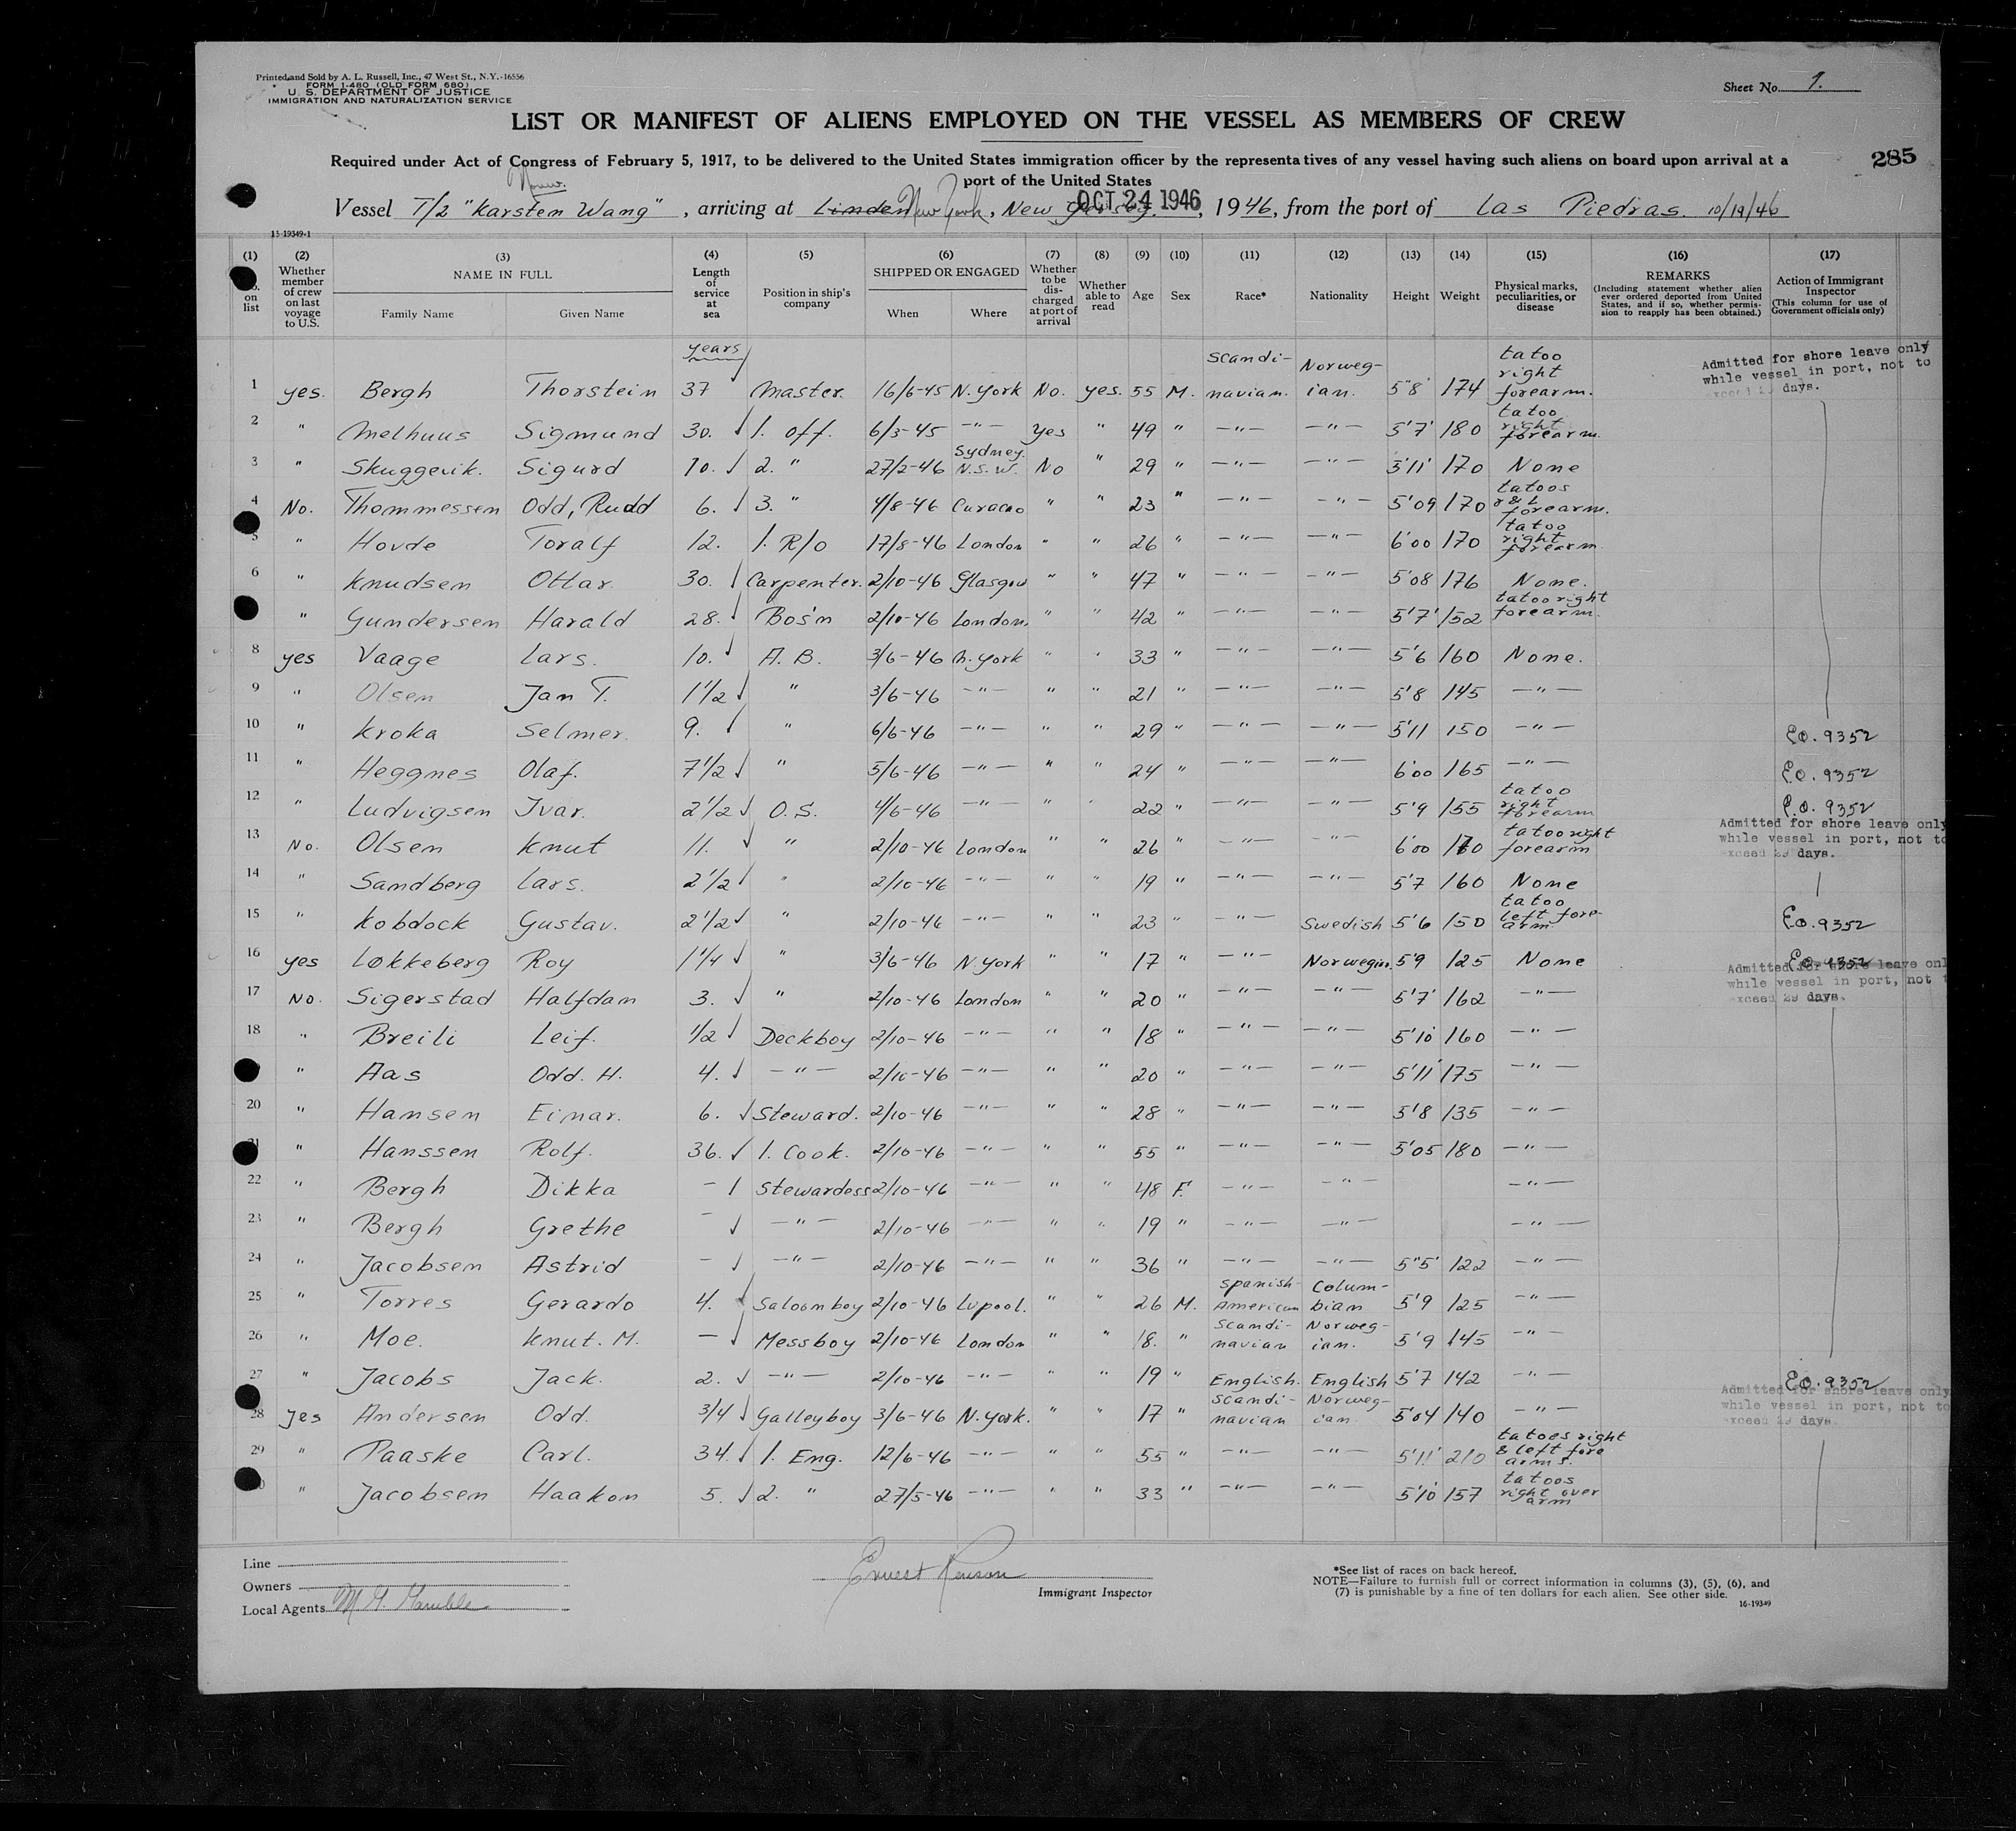 Printed and Sold by A. L. Russell, Inc., 47 West St., N.Y.-16556
FORM I-480 (OLD FORM 680)
U. S. DEPARTMENT OF JUSTICE
IMMIGRATION AND NATURALIZATION SERVICE
Sheet No. 1.
LIST OR MANIFEST OF ALIENS EMPLOYED ON THE VESSEL AS MEMBERS OF CREW
Required under Act of Congress of February 5, 1917, to be delivered to the United States immigration officer by the representatives of any vessel having such aliens on board upon arrival at a
port of the United States
285
Vessel T/2 "Karsten Wang", arriving at Linden New York, New Jersey. OCT 24 1946, 1946, from the port of Las Piedras. 10/19/46
15-19349-1
(1) (2) (3) (4) (5) (6) (7) (8) (9) (10) (11) (12) (13) (14) (15) (16) (17)
No. on list
Whether member of crew on last voyage to U.S.
NAME IN FULL
Family Name Given Name
Length of service at sea
Position in ship's company
SHIPPED OR ENGAGED
When Where
Whether to be discharged at port of arrival
Whether able to read
Age Sex Race* Nationality Height Weight
Physical marks, peculiarities, or disease
REMARKS
(Including statement whether alien ever ordered deported from United States, and if so, whether permission to reapply has been obtained.)
Action of Immigrant Inspector
(This column for use of Government officials only)
years
1 yes. Bergh Thorstein 37 Master. 16/6-45 N. York No. yes. 55 M. Scandinavian. Norwegian. 5"8' 174 tatoo right forearm.
Admitted for shore leave only while vessel in port, not to exceed 29 days.
2 " Melhuus Sigmund 30. 1. off. 6/3-45 -"- yes " 49 " -"- -"- 5'7' 180 tatoo right forearm.
3 " Skuggevik. Sigurd 10. 2. " 27/2-46 Sydney. N.S.W. No " 29 " -"- -"- 5'11' 170 None
4 No. Thommessen Odd, Rudd 6. 3. " 4/8-46 Curacao " " 23 " -"- -"- 5'09 170 tatoos r & L forearm.
5 " Hovde Toralf 12. 1. R/o 17/8-46 London " " 26 " -"- -"- 6'00 170 tatoo right forearm
6 " Knudsen Ottar. 30. Carpenter. 2/10-46 Glasgow " " 47 " -"- -"- 5'08 176 None.
" Gundersen Harald 28. Bos'n 2/10-46 London. " " 42 " -"- -"- 5'7' 152 tatoo right forearm.
8 yes Vaage Lars. 10. A. B. 3/6-46 N. York " " 33 " -"- -"- 5'6 160 None.
9 " Olsen Jan T. 1 1/2 " 3/6-46 -"- " " 21 " -"- -"- 5'8 145 -"-
10 " Kroka Selmer. 9. " 6/6-46 -"- " " 29 " -"- -"- 5'11 150 -"- E.O. 9352
11 " Heggnes Olaf. 7 1/2 " 5/6-46 -"- " " 24 " -"- -"- 6'00 165 -"- E.O. 9352
12 " Ludvigsen Ivar. 2 1/2 O. S. 4/6-46 -"- " " 22 " -"- -"- 5'9 155 tatoo right forearm E.O. 9352
13 No. Olsen Knut 11. " 2/10-46 London " " 26 " -"- -"- 6'00 170 tatoo right forearm
Admitted for shore leave only while vessel in port, not to exceed 29 days.
14 " Sandberg Lars. 2 1/2 " 2/10-46 -"- " " 19 " -"- -"- 5'7 160 None
15 " Kobdock Gustav. 2 1/2 " 2/10-46 -"- " " 23 " -"- Swedish 5'6 150 tatoo left forearm E.O. 9352
16 yes Løkkeberg Roy 1 1/4 " 3/6-46 N. York " " 17 " -"- Norwegian. 5'9 125 None E.O. 9352
Admitted for shore leave only while vessel in port, not to exceed 29 days.
17 No. Sigerstad Halfdan 3. " 2/10-46 London " " 20 " -"- -"- 5'7' 162 -"-
18 " Breili Leif. 1/2 Deckboy 2/10-46 -"- " " 18 " -"- -"- 5'10 160 -"-
" Aas Odd. H. 4. -"- 2/10-46 -"- " " 20 " -"- -"- 5'11 175 -"-
20 " Hansen Einar. 6. Steward. 2/10-46 -"- " " 28 " -"- -"- 5'8 135 -"-
21 " Hanssen Rolf. 36. 1. Cook. 2/10-46 -"- " " 55 " -"- -"- 5'05 180 -"-
22 " Bergh Dikka - Stewardess 2/10-46 -"- " " 48 F. -"- -"- -"-
23 " Bergh Grethe - -"- 2/10-46 -"- " " 19 " -"- -"- -"-
24 " Jacobsen Astrid - -"- 2/10-46 -"- " " 36 " -"- -"- 5"5' 122 -"-
25 " Torres Gerardo 4. Saloonboy 2/10-46 Lvpool. " " 26 M. Spanish-American Columbian 5'9 125 -"-
26 " Moe. Knut. M. - Messboy 2/10-46 London " " 18. " Scandinavian Norwegian. 5'9 145 -"-
27 " Jacobs Jack. 2. -"- 2/10-46 -"- " " 19 " English. English 5'7 142 -"- E.O. 9352
28 Yes Andersen Odd. 3/4 Galleyboy 3/6-46 N. York. " " 17 " Scandinavian Norwegian 5'04 140 -"-
Admitted for shore leave only while vessel in port, not to exceed 29 days.
29 " Paaske Carl. 34. 1. Eng. 12/6-46 -"- " " 55 " -"- -"- 5'11' 210 tatoes right & left fore arms.
" Jacobsen Haakon 5. 2. " 27/5-46 -"- " " 33 " -"- -"- 5'10 157 tatoos right over arm
Line
Owners
Local Agents
Immigrant Inspector
*See list of races on back hereof.
NOTE—Failure to furnish full or correct information in columns (3), (5), (6), and
(7) is punishable by a fine of ten dollars for each alien. See other side.
16-19349